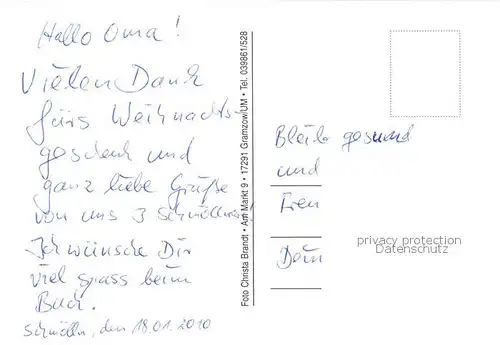 Hallo Oma!
Vielen Dank
fürs Weihnachts-
geschenk und
ganz liebe Grüße
von uns 3 Schmöllnern!
Ich wünsche Dir
viel spass beim
Buch.
Schmölln, den 18.01.2010
Foto Christa Brandt • Am Markt 9 • 17291 Gramzow/UM • Tel. 039861/528
Bleib gesund
und
privacy protection
Datenschutz
Dein